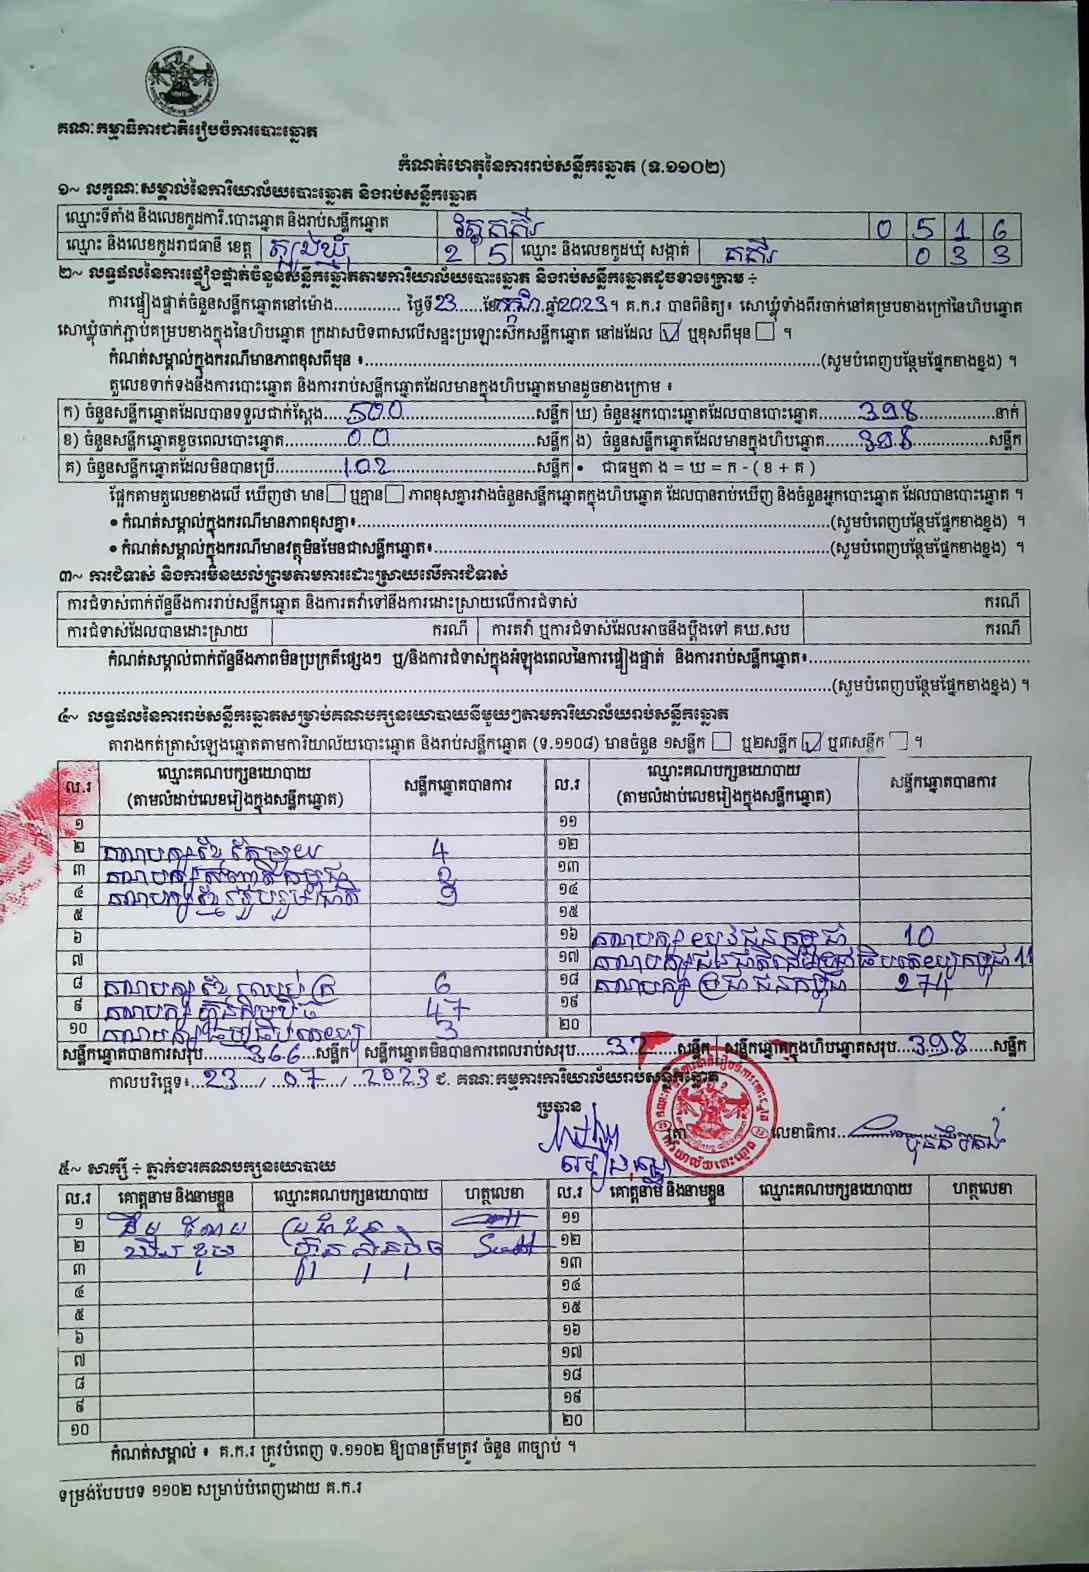 គណៈកម្មាធិការជាតិរៀបចំការបោះឆ្នោត
កំណត់ហេតុនៃការរាប់សន្លឹកឆ្នោត (ទ.១១០២)
១~ លក្ខណៈសម្គាល់នៃការិយាល័យបោះឆ្នោត និងរាប់សន្លឹកឆ្នោត
ឈ្មោះទីតាំង និងលេខកូដការិ.បោះឆ្នោត និងរាប់សន្លឹកឆ្នោត 0 5 1 6
ឈ្មោះ និងលេខកូដរាជធានី ខេត្ត ត្បូងឃ្មុំ 2 5 ឈ្មោះ និងលេខកូដឃុំ សង្កាត់ គគីរ 0 3 3
២~ លទ្ធផលនៃការផ្ទៀងផ្ទាត់ចំនួនសន្លឹកឆ្នោតតាមការិយាល័យបោះឆ្នោត និងរាប់សន្លឹកឆ្នោតដូចខាងក្រោម ÷
ការផ្ទៀងផ្ទាត់ចំនួនសន្លឹកឆ្នោតនៅម៉ោង.............. ថ្ងៃទី23......ខែកក្កដា ឆ្នាំ2023។ គ.ក.រ បានពិនិត្យ៖ សោឃ្លុំទាំងពីរចាក់នៅគម្របខាងក្រៅនៃហិបឆ្នោត
សោឃ្លុំចាក់ភ្ជាប់គម្របខាងក្នុងនៃហិបឆ្នោត ក្រដាសបិទពាសលើសន្ទះប្រឡោះស៊កសន្លឹកឆ្នោត នៅដដែល ☑ ឬខុសពីមុន ☐ ។
កំណត់សម្គាល់ក្នុងករណីមានភាពខុសពីមុន ៖..............................(សូមបំពេញបន្ថែមផ្នែកខាងខ្នង) ។
តួលេខទាក់ទងនឹងការបោះឆ្នោត និងការរាប់សន្លឹកឆ្នោតដែលមានក្នុងហិបឆ្នោតមានដូចខាងក្រោម ៖
ក) ចំនួនសន្លឹកឆ្នោតដែលបានទទួលជាក់ស្តែង......500......សន្លឹក ឃ) ចំនួនអ្នកបោះឆ្នោតដែលបានបោះឆ្នោត......398......នាក់
ខ) ចំនួនសន្លឹកឆ្នោតខូចពេលបោះឆ្នោត......00......សន្លឹក ង) ចំនួនសន្លឹកឆ្នោតដែលមានក្នុងហិបឆ្នោត......398......សន្លឹក
គ) ចំនួនសន្លឹកឆ្នោតដែលមិនបានប្រើ......102......សន្លឹក • ជាធម្មតា ង = ឃ = ក - ( ខ + គ )
ផ្អែកតាមតួលេខខាងលើ ឃើញថា មាន☐ ឬគ្មាន☐ ភាពខុសគ្នារវាងចំនួនសន្លឹកឆ្នោតក្នុងហិបឆ្នោត ដែលបានរាប់ឃើញ និងចំនួនអ្នកបោះឆ្នោត ដែលបានបោះឆ្នោត ។
• កំណត់សម្គាល់ក្នុងករណីមានភាពខុសគ្នា៖..............................(សូមបំពេញបន្ថែមផ្នែកខាងខ្នង) ។
• កំណត់សម្គាល់ក្នុងករណីមានវត្ថុមិនមែនជាសន្លឹកឆ្នោត៖..............................(សូមបំពេញបន្ថែមផ្នែកខាងខ្នង) ។
៣~ ការជំទាស់ និងការមិនយល់ព្រមតាមការដោះស្រាយលើការជំទាស់
ការជំទាស់ពាក់ព័ន្ធនឹងការរាប់សន្លឹកឆ្នោត និងការតវ៉ាទៅនឹងការដោះស្រាយលើការជំទាស់ ករណី
ការជំទាស់ដែលបានដោះស្រាយ ករណី ការតវ៉ា ឬការជំទាស់ដែលអាចនឹងប្តឹងទៅ គឃ.សប ករណី
កំណត់សម្គាល់ពាក់ព័ន្ធនឹងភាពមិនប្រក្រតីផ្សេងៗ ឬ/និងការជំទាស់ក្នុងអំឡុងពេលនៃការផ្ទៀងផ្ទាត់ និងការរាប់សន្លឹកឆ្នោត៖..............................
..............................(សូមបំពេញបន្ថែមផ្នែកខាងខ្នង) ។
៤~ លទ្ធផលនៃការរាប់សន្លឹកឆ្នោតសម្រាប់គណបក្សនយោបាយនីមួយៗតាមការិយាល័យរាប់សន្លឹកឆ្នោត
តារាងកត់ត្រាសំឡេងឆ្នោតតាមការិយាល័យបោះឆ្នោត និងរាប់សន្លឹកឆ្នោត (ទ.១១០៨) មានចំនួន ១សន្លឹក ☐ ឬ២សន្លឹក ☑ ឬ៣សន្លឹក ☐ ។
ល.រ ឈ្មោះគណបក្សនយោបាយ (តាមលំដាប់លេខរៀងក្នុងសន្លឹកឆ្នោត) សន្លឹកឆ្នោតបានការ ល.រ ឈ្មោះគណបក្សនយោបាយ (តាមលំដាប់លេខរៀងក្នុងសន្លឹកឆ្នោត) សន្លឹកឆ្នោតបានការ
១ ១១
២ គណបក្សខ្មែរតែមួយ 4 ១២
៣ គណបក្ស ១៣
៤ គណបក្សខ្មែររួបរួមជាតិ 9 ១៤
៥ ១៥
៦ ១៦ គណបក្ស យុវជនកម្ពុជា 10
៧ ១៧ គណបក្សជនជាតិដើមប្រជាធិបតេយ្យកម្ពុជា 11
៨ គណបក្ស 6 ១៨ គណបក្ស ប្រជាជនកម្ពុជា 274
៩ គណបក្ស ហ៊្វុនស៊ិនប៉ិច 47 ១៩
១០ គណបក្ស 3 ២០
សន្លឹកឆ្នោតបានការសរុប......366......សន្លឹក សន្លឹកឆ្នោតមិនបានការពេលរាប់សរុប......32......សន្លឹក សន្លឹកឆ្នោតក្នុងហិបឆ្នោតសរុប...398......សន្លឹក
កាលបរិច្ឆេទ៖...23..../...07..../...2023 ជ. គណៈកម្មការការិយាល័យរាប់សន្លឹកឆ្នោត
ប្រធាន
ត្រា លេខាធិការ
៥~ សាក្សី ÷ ភ្នាក់ងារគណបក្សនយោបាយ
ល.រ គោត្តនាម និងនាមខ្លួន ឈ្មោះគណបក្សនយោបាយ ហត្ថលេខា ល.រ គោត្តនាម និងនាមខ្លួន ឈ្មោះគណបក្សនយោបាយ ហត្ថលេខា
១ ប្រជាជន ១១
២ ហ៊្វុនស៊ិនប៉ិច ១២
៣ ១៣
៤ ១៤
៥ ១៥
៦ ១៦
៧ ១៧
៨ ១៨
៩ ១៩
១០ ២០
កំណត់សម្គាល់ ៖ គ.ក.រ ត្រូវបំពេញ ទ.១១០២ ឱ្យបានត្រឹមត្រូវ ចំនួន ៣ច្បាប់ ។
ទម្រង់បែបបទ ១១០២ សម្រាប់បំពេញដោយ គ.ក.រ